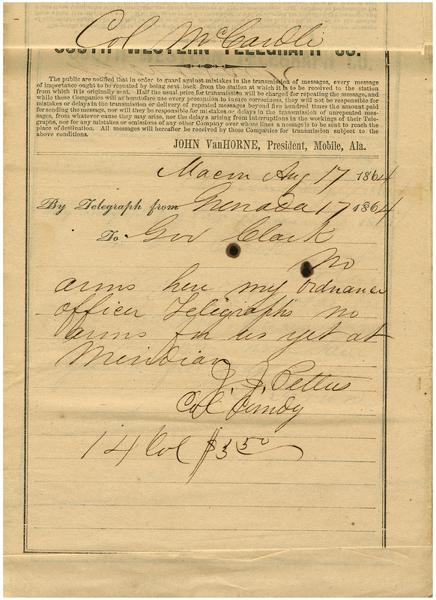 Col McCardle
SOUTH WESTERN TELEGRAPH CO.
The public are notified that in order to guard against mistakes in the transmission of messages, every message
of importance ought to be repeated by being sent back from the station at which it is to be received to the station
from which it is originally sent. Half the usual price for transmission will be charged for repeating the message, and
while these Companies will as heretofore use every precaution to insure correctness, they will not be responsible for
mistakes or delays in the transmission or delivery of repeated messages beyond five hundred times the amount paid
for sending the message, nor will they be responsible for mistakes or delays in the transmission of unrepeated mes-
sages, from whatever cause they may arise, nor the delays arising from interruptions in the workings of their Tele-
graphs, nor for any mistakes or omissions of any other Company over whose lines a message is to be sent to reach the
place of destination. All messages will hereafter be received by these Companies for transmission subject to the
above conditions.
JOHN VanHORNE, President, Mobile, Ala.
Macon Aug 17 1864
By Telegraph from Grenada 17 1864
To Gov Clark
No
arms here my ordnance
officer Telegraphs no
arms for us yet at
Meridian
J. J. Pettus
Col Comdy
14 Col $3.50